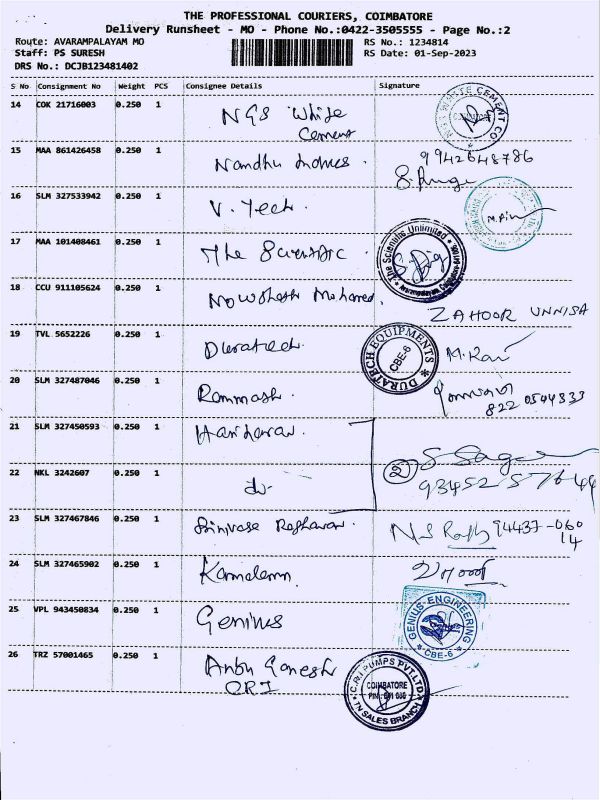 THE PROFESSIONAL COURIERS, COIMBATORE
Delivery Runsheet - MO - Phone No.:0422-3505555 - Page No.:2
Route: AVARAMPALAYAM MO RS No.: 1234814
Staff: PS SURESH RS Date: 01-Sep-2023
DRS No.: DCJB123481402
S No Consignment No Weight PCS Consignee Details Signature
14 COK 21716003 0.250 1 NGS White
Cement
15 MAA 861426458 0.250 1 Nandhu Homes. 9942648786
16 SLM 327533942 0.250 1 V. Tech.
17 MAA 101408461 0.250 1 The Scientific
The Scientific Unlimited
18 CCU 911105624 0.250 1 Mohamed.
ZAHOOR UNNISA
19 TVL 5652226 0.250 1 Duratech. DURATECH EQUIPMENTS
CBE-6
20 SLM 327487046 0.250 1 Rammash.
822 0544333
21 SLM 327450593 0.250 1 Hariharan.
22 NKL 3242607 0.250 1 do 2
23 SLM 327467846 0.250 1 Srinivasa Raghavan. 94437-060
14
24 SLM 327465902 0.250 1
25 VPL 943450834 0.250 1 Genius GENIUS ENGINEERING
CBE-6
26 TRZ 57001465 0.250 1 Anbu Ganesh
CRI
C.R.I PUMPS PVT.LTD
COIMBATORE
TN SALES BRANCH